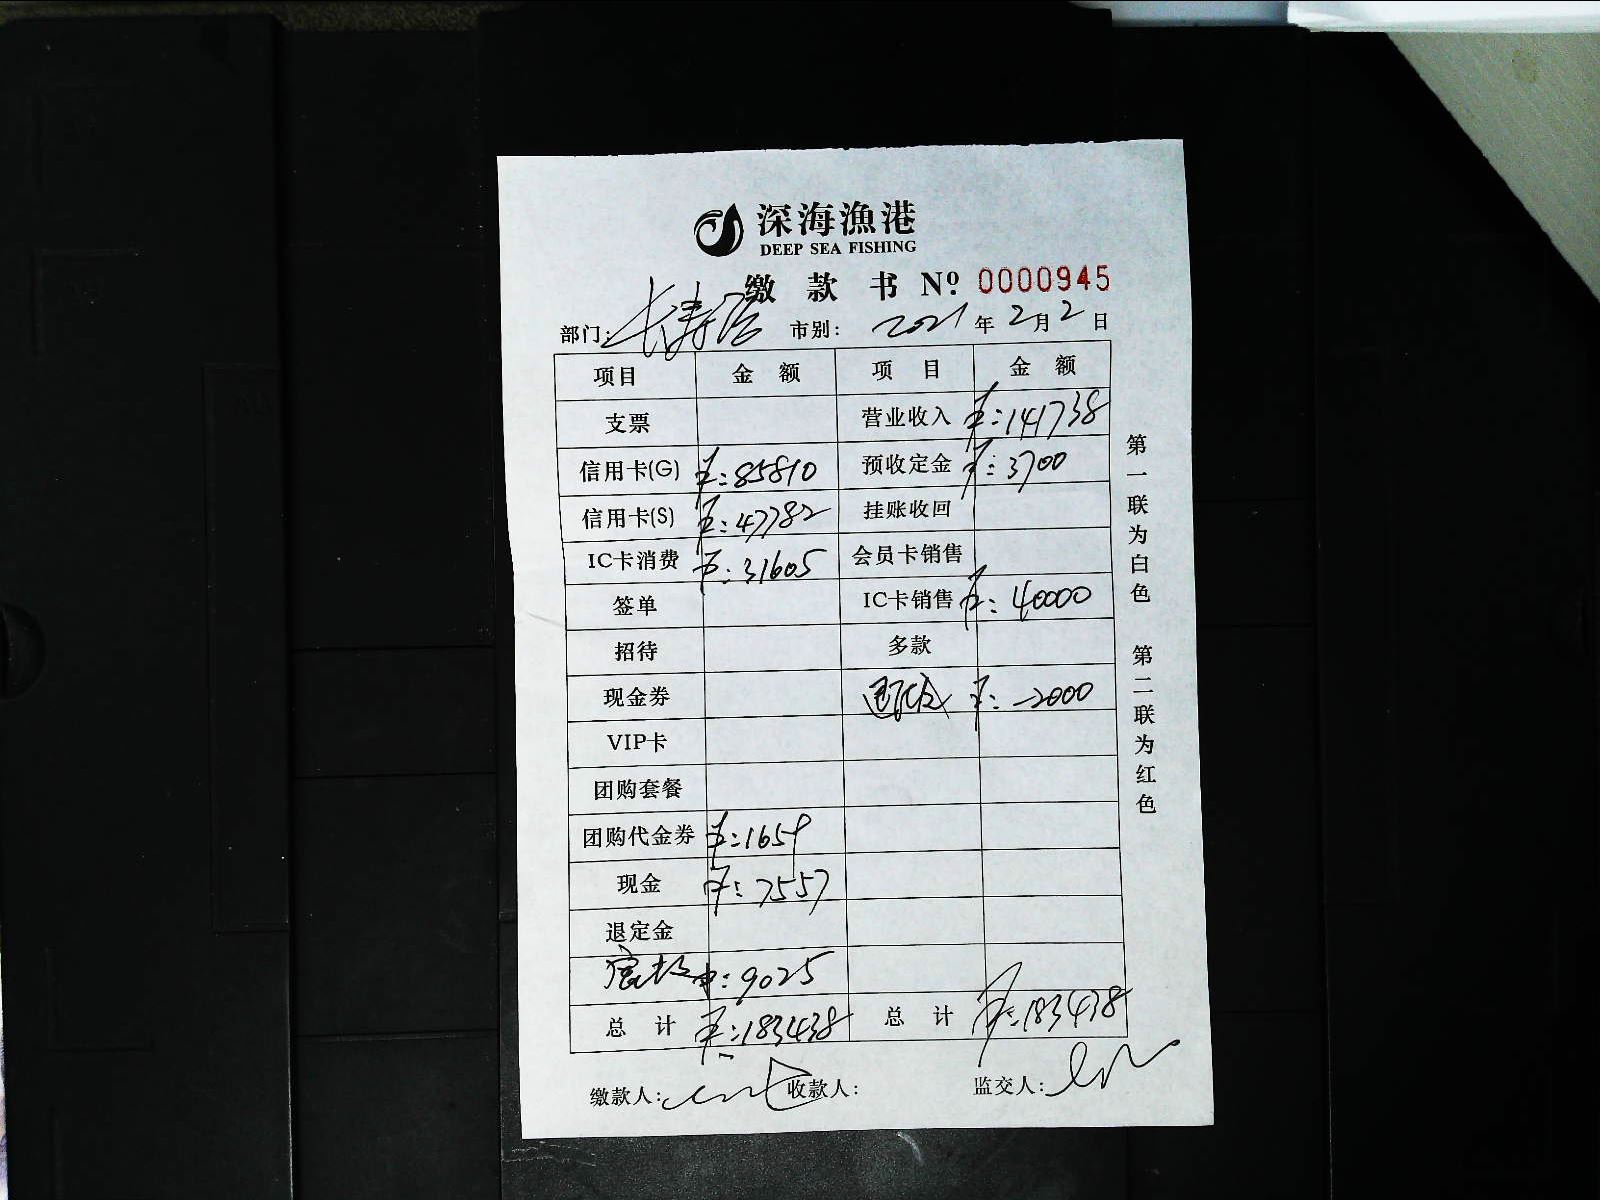 深海漁港
DEEP SEA FISHING
缴款书 Nº 0000945
部门: 长寿路 市别: 2021年2月2日
项目 金额 项目 金额
支票 营业收入 ¥:141738
信用卡(G) ¥:85810 预收定金 ¥:3700
信用卡(S) ¥:47782 挂账收回
IC卡消费 ¥:31605 会员卡销售
签单 IC卡销售 ¥:40000
招待 多款
现金券 ¥:-2000
VIP卡
团购套餐
团购代金券 ¥:1659
现金 ¥:7557
退定金
¥:9025
总计 ¥:183438 总计 ¥:183438
缴款人: 收款人: 监交人:
第一联为白色 第二联为红色